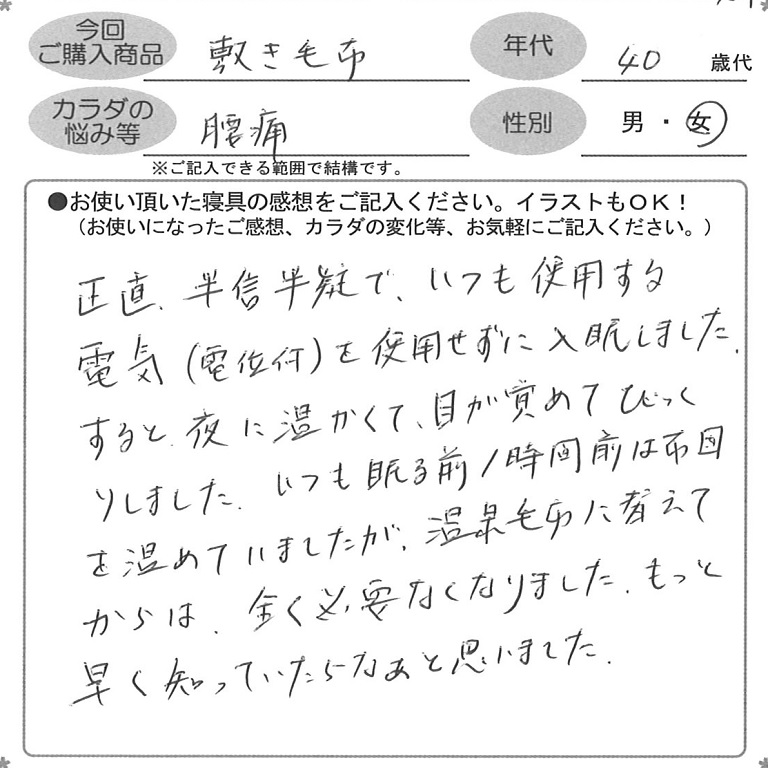 今回
ご購入商品
敷き毛布
年代
40 歳代
カラダの
悩み等
腰痛
性別
男・女
※ご記入できる範囲で結構です。
●お使い頂いた寝具の感想をご記入ください。イラストもOK!
(お使いになったご感想、カラダの変化等、お気軽にご記入ください。)
正直、半信半疑で、いつも使用する
電気(電位付)を使用せずに入眠しました。
すると、夜に温かくて、目が覚めてびっく
りしました。いつも眠る前1時間前は布団
を温めていましたが、温泉毛布に替えて
からは、全く必要なくなりました。もっと
早く知っていたらなあと思いました。